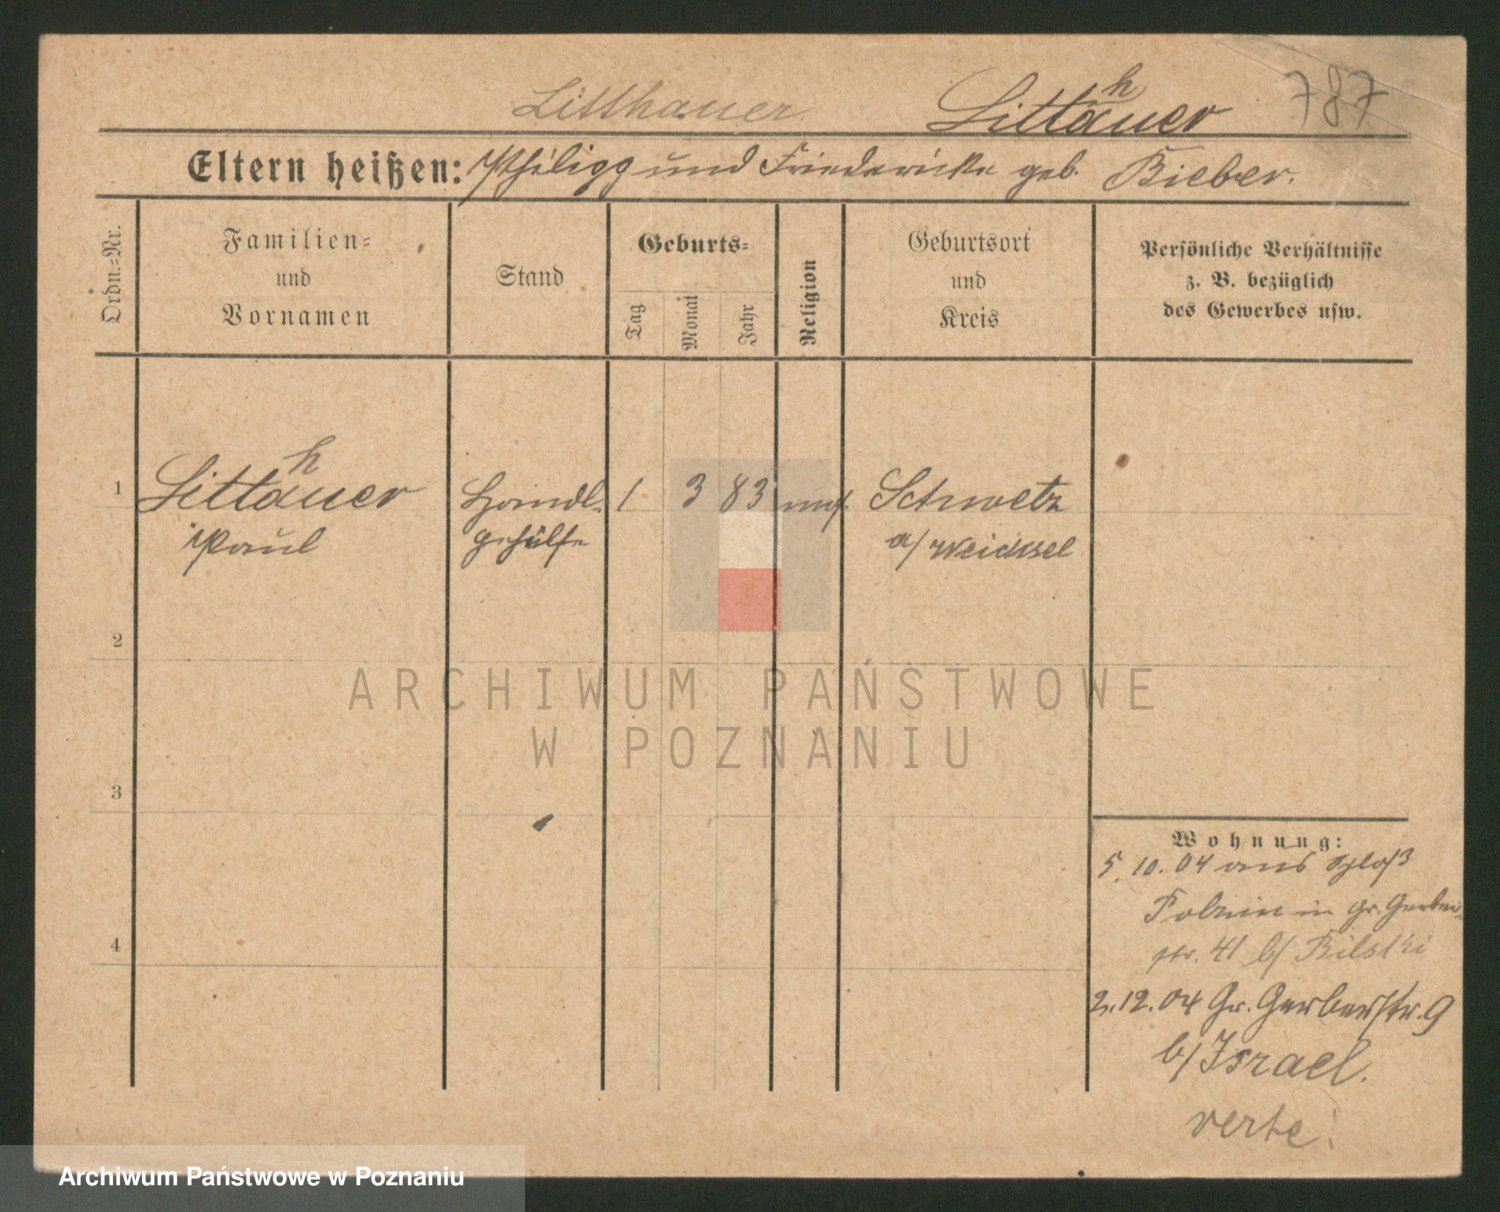 Litthauer Litthauer 787
Eltern heißen: Philipp und Friedericke geb. Bieber.
Ordn.-Nr.
Familien-
und
Vornamen
Stand
Geburts-
Tag
Monat
Jahr
Religion
Geburtsort
und
Kreis
Persönliche Verhältnisse
z. B. bezüglich
des Gewerbes usw.
1 Litthauer Handl. 1 3 83 mos. Schwetz
Paul gehülfe a/ Weichsel
2
3
4
ARCHIWUM PAŃSTWOWE
W POZNANIU
Wohnung:
5. 10. 04 aus Schloß
in gr. Gerber-
str. 41 b/ Bilski
2. 12. 04 Gr. Gerberstr. 9
b/ Israel.
verte!
Archiwum Państwowe w Poznaniu